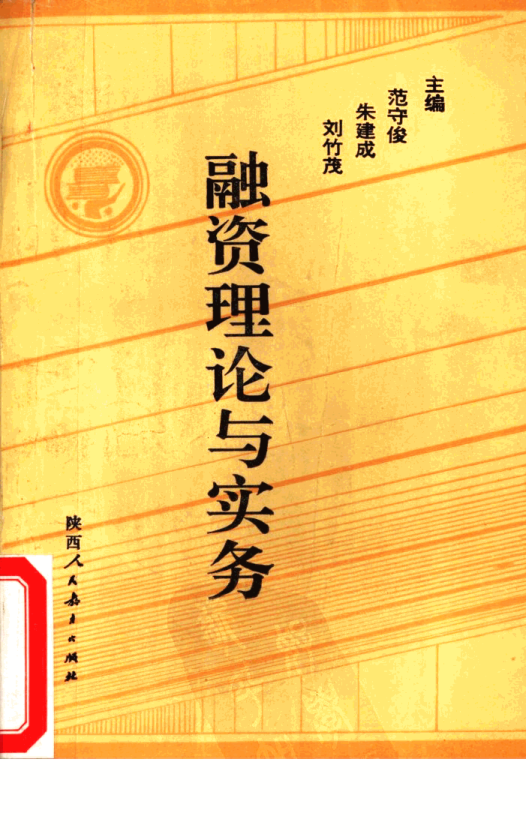 主编
范守俊
朱建成
刘竹茂
融资理论与实务
陕西人民教育出版社